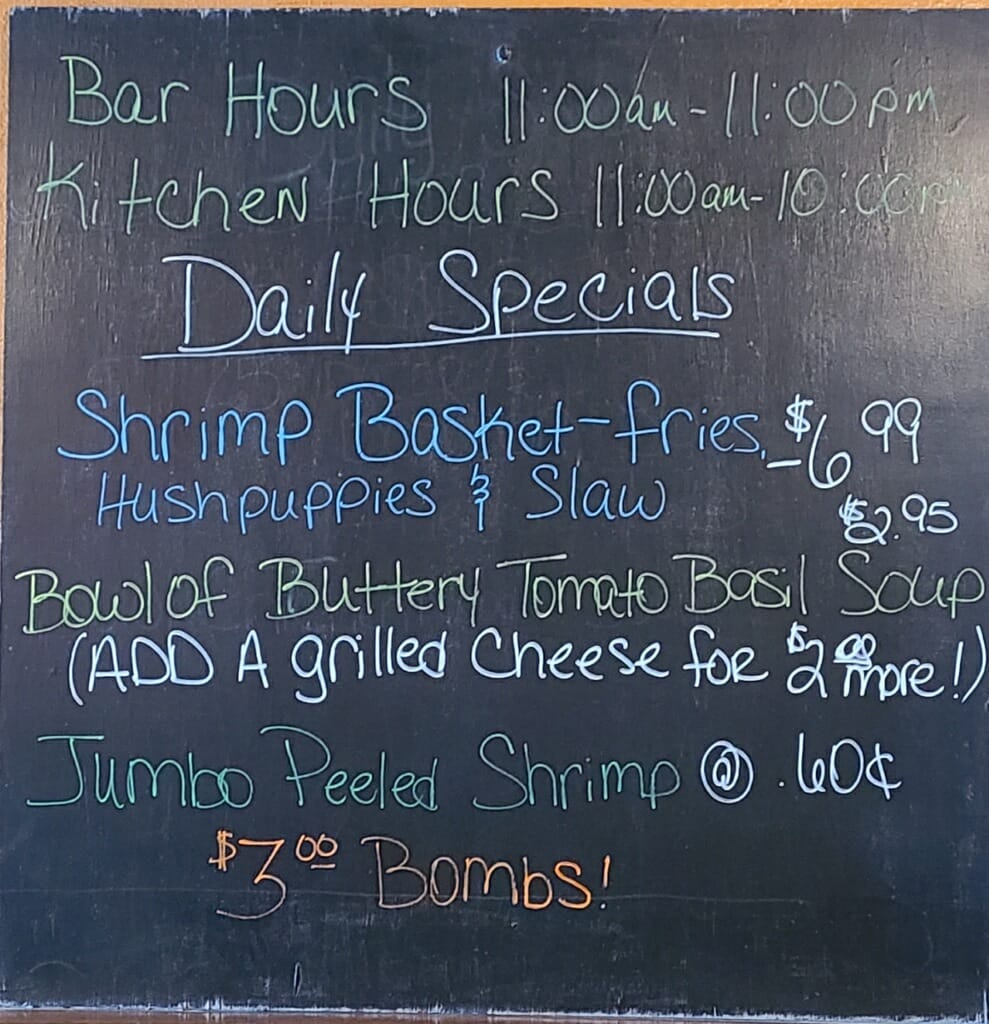 Bar Hours 11:00am-11:00pm
Kitchen Hours 11:00am-10:00p
Daily Specials
Shrimp Basket-fries, $6.99
Hushpuppies & Slaw
$2.95
Bowl of Buttery Tomato Basil Soup
(ADD A grilled Cheese for $2.00 more!)
Jumbo Peeled Shrimp @ .60¢
$3.00 Bombs!